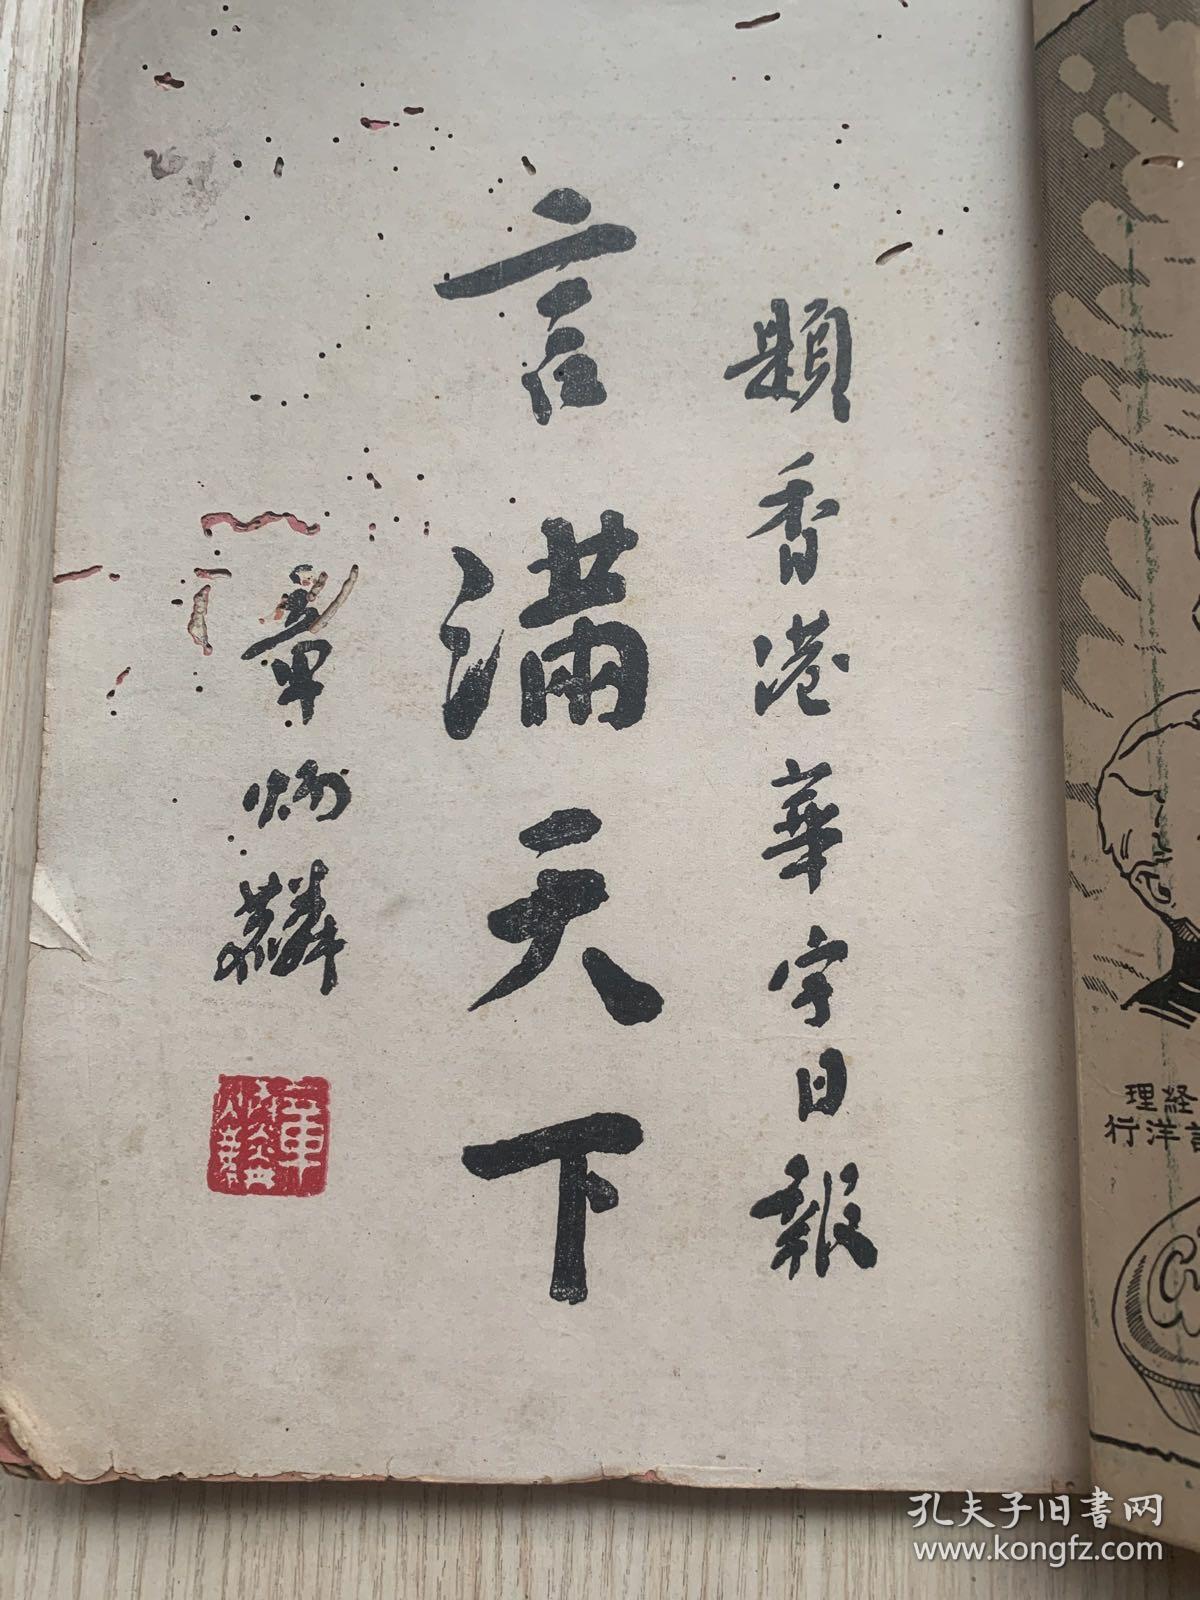 題香港華字日報
言滿天下
章炳麟
経
理
洋行
孔夫子旧書网
www.kongfz.com